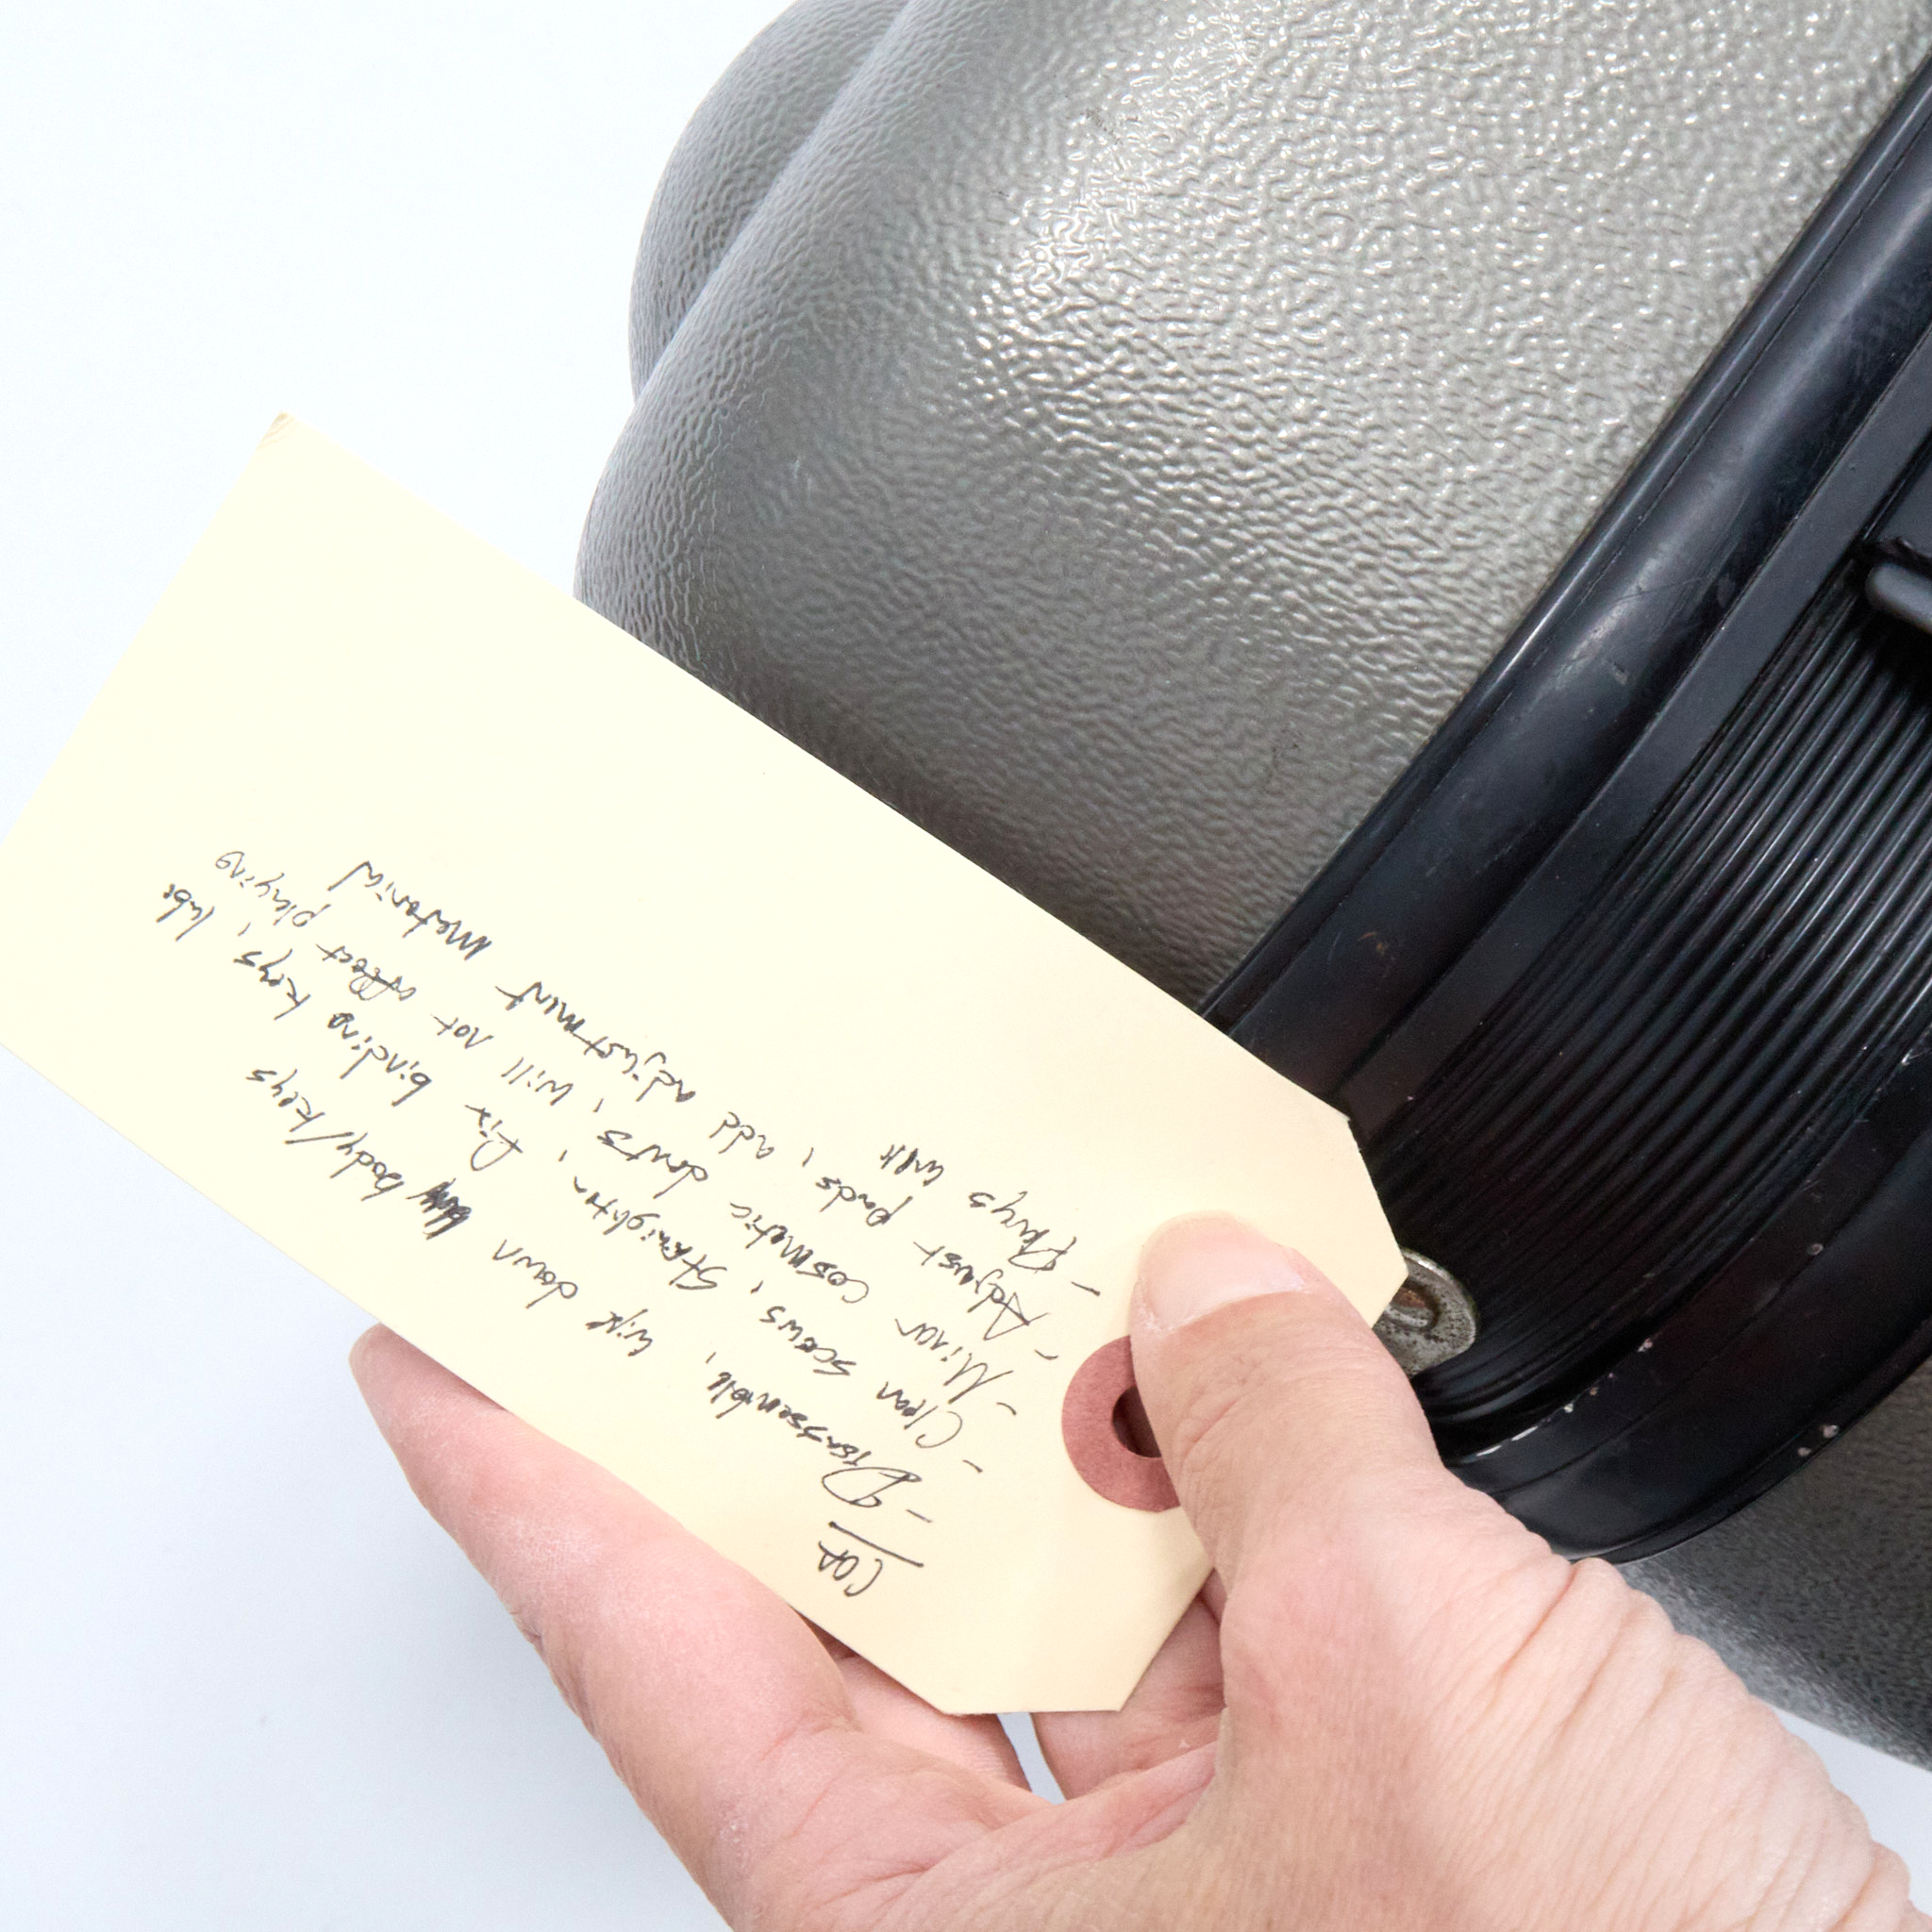 COA
- Disassemble, wipe down body/keys
- Clean screws, straighten, fix binding keys, lube
- Minor cosmetic dents, will not affect playing
- Adjust pads, add adjustment material
- Plays well